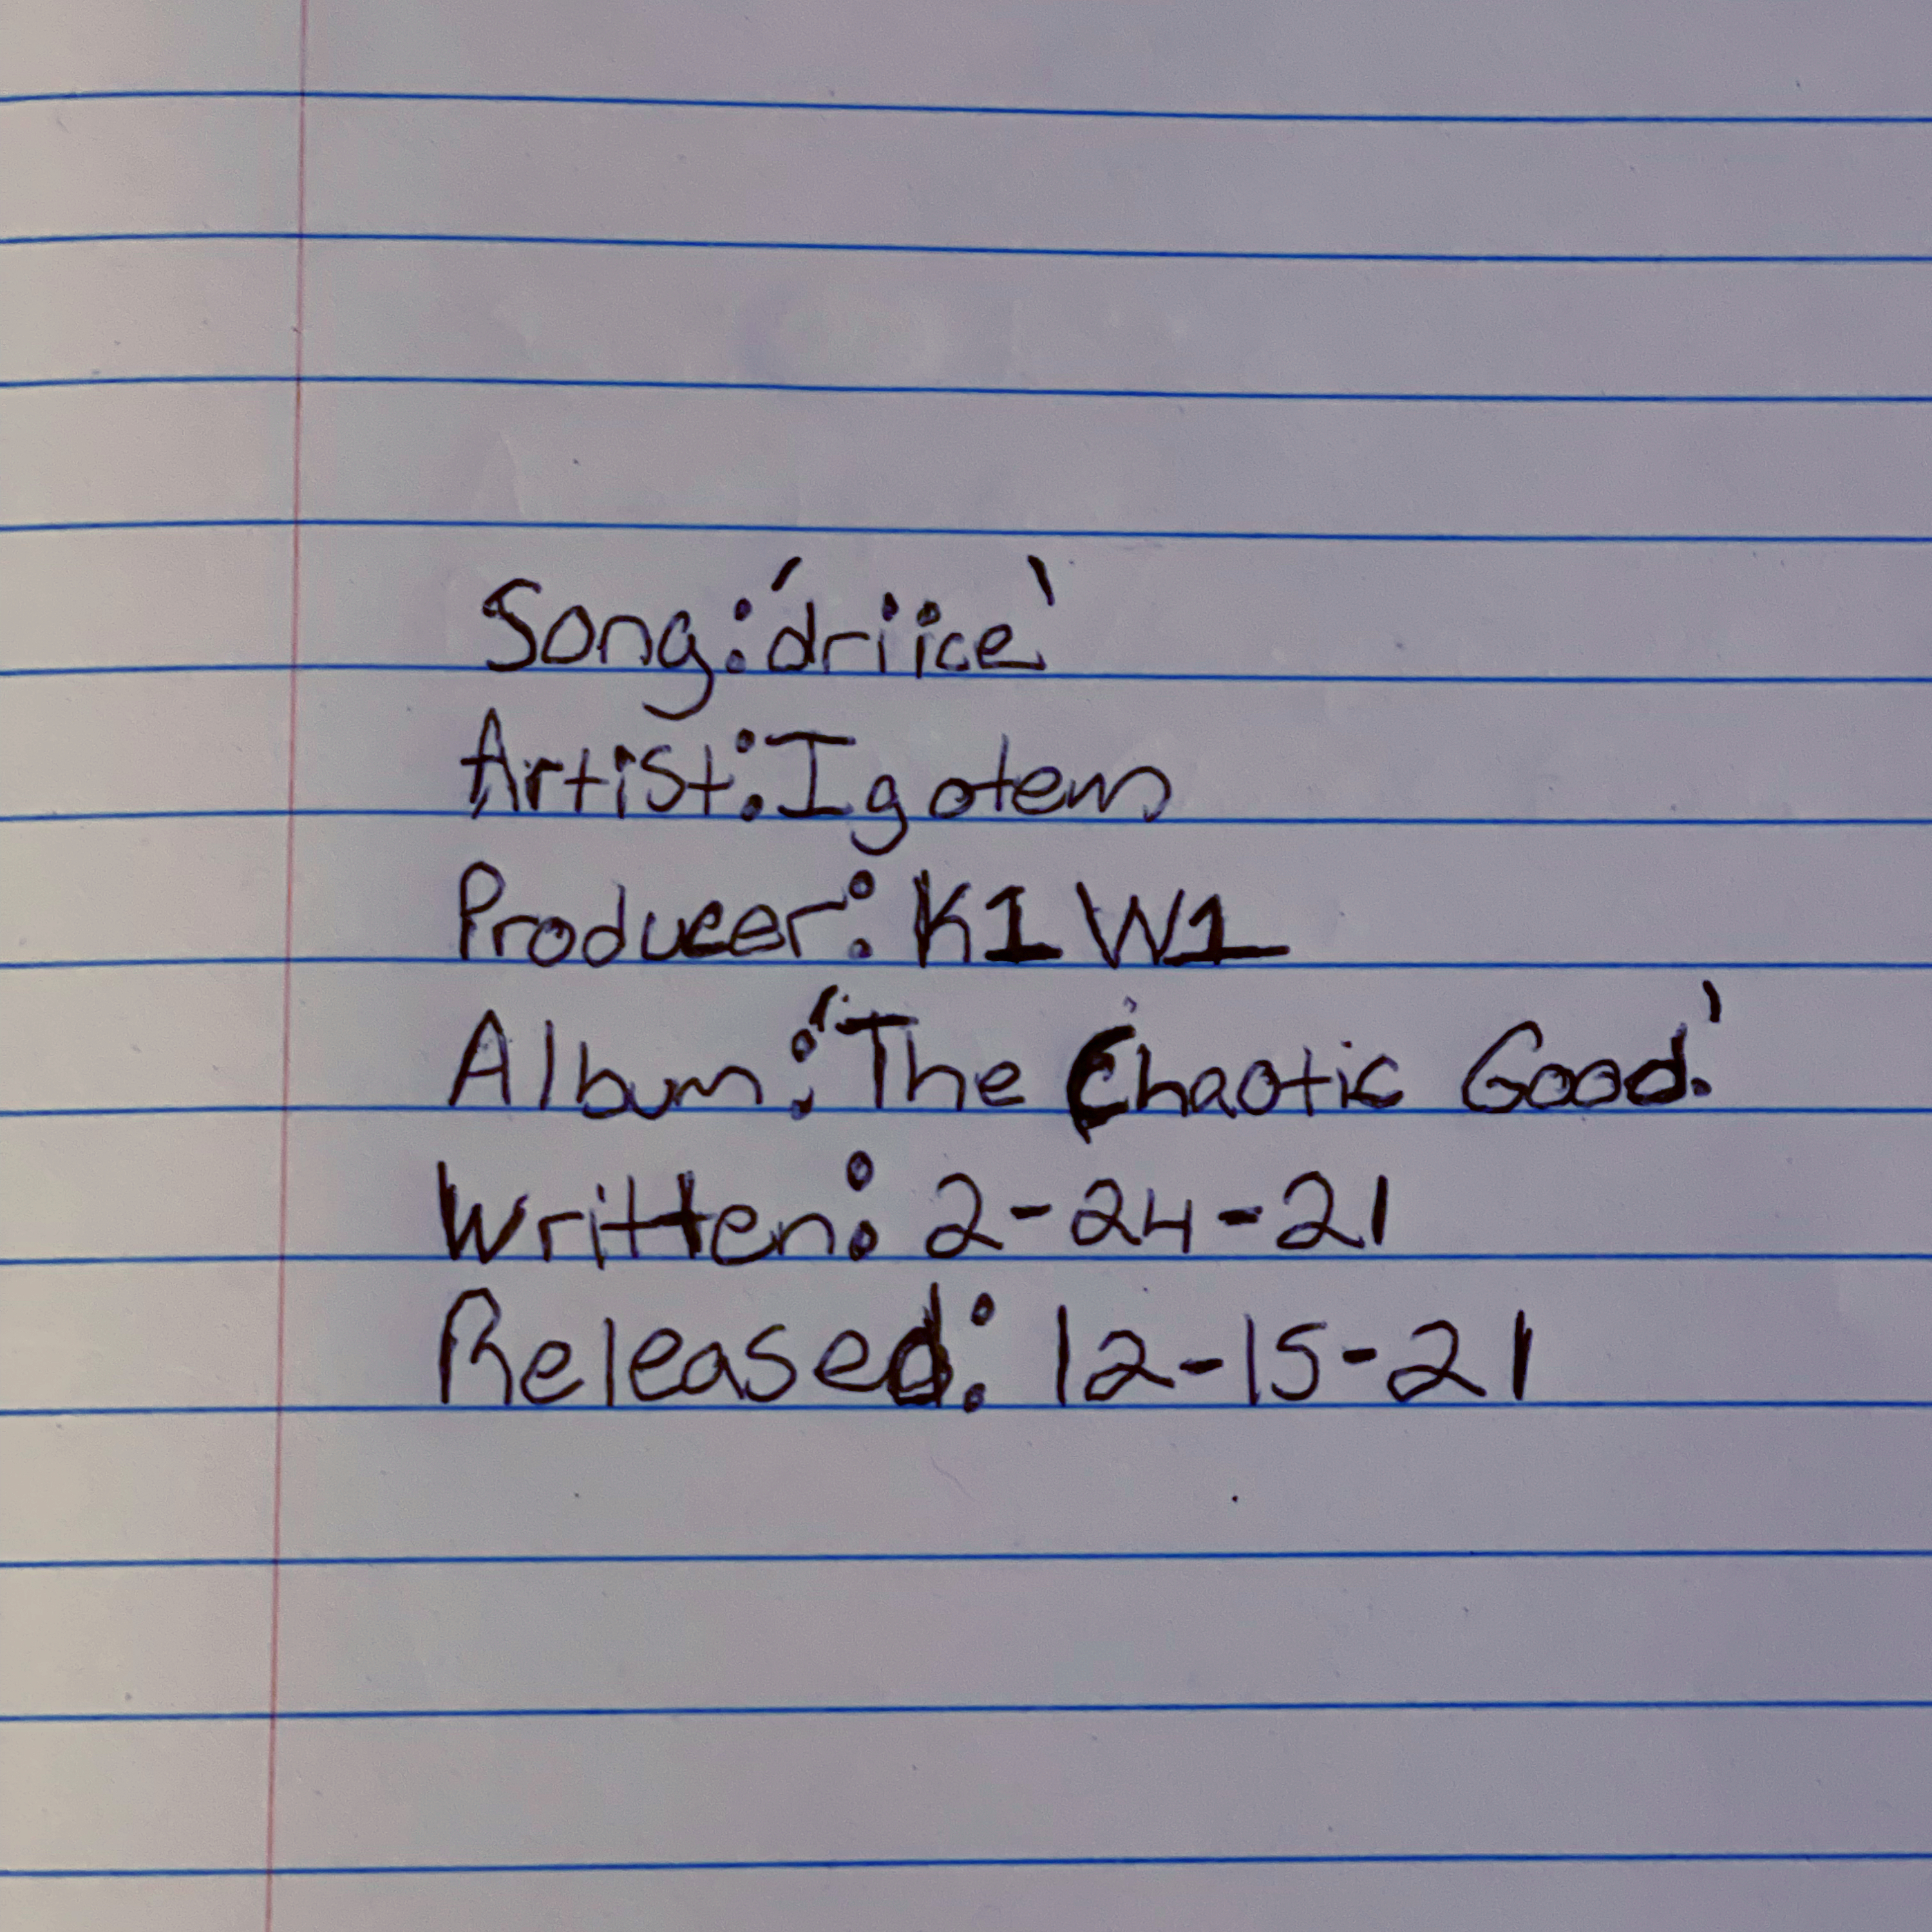 Song: 'driice'
Artist: Igotem
Producer: K1W1
Album: 'The Chaotic Good.'
Written: 2-24-21
Released: 12-15-21